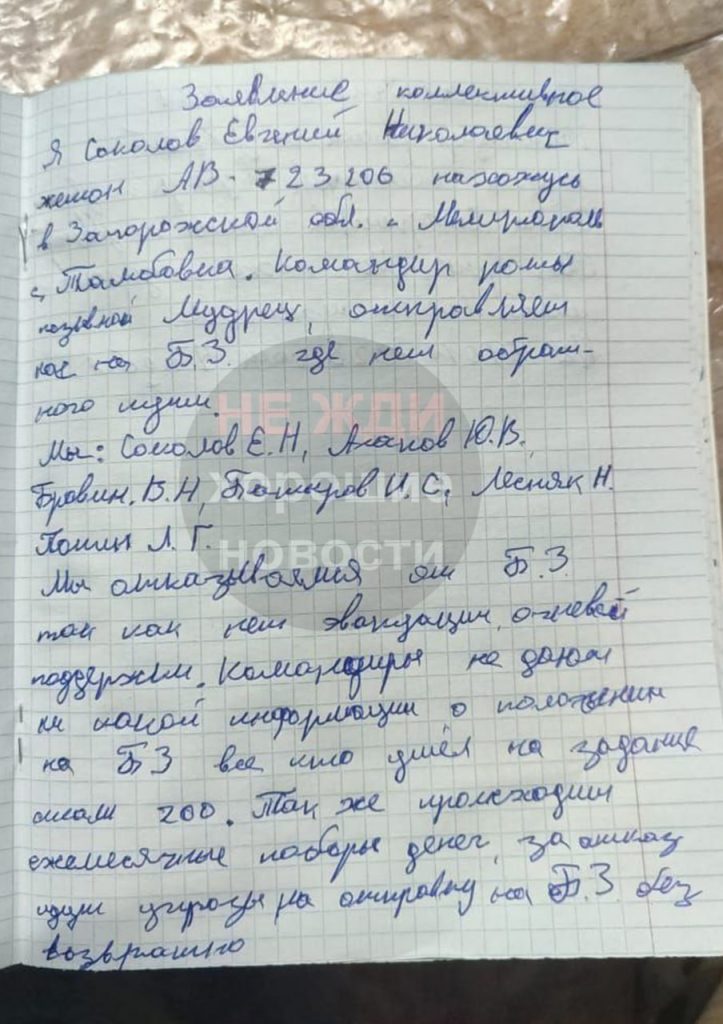 Заявление коллективное
Я Соколов Евгений Николаевич
жетон АВ-723206 нахожусь
в Запорожской обл. г. Мелитополь
с. Тамбовка. Командир роты
позывной Мудрец, отправляет
нас на Б.З. где нет обрат-
ного пути.
Мы: Соколов Е.Н, Агапов Ю.В.,
Бровин.В.Н, Башкуров И.С, Лесняк Н.
Л.Г.
Мы отказываемся от Б.З.
так как нет эвакуации, огневой
поддержки. Командиры не дают
ни какой информации о положении
на БЗ все кто ушёл на задание
стали 200. Так же происходит
ежемесячные поборы денег, за отказ
идут угрозы на отправку на Б.З. без
возвратно
НЕ ЖДИ
хорошие
новости